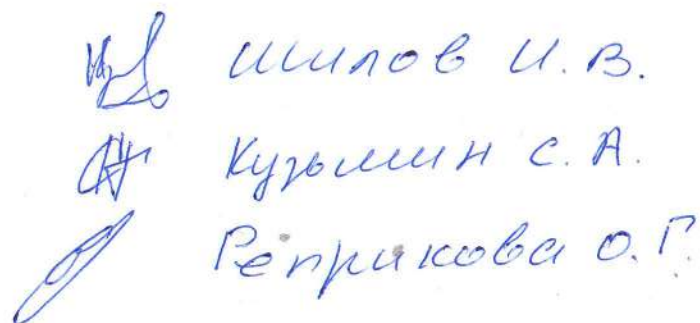 Шилов И.В.
Кузьмин С.А.
Реприкова О.Г.